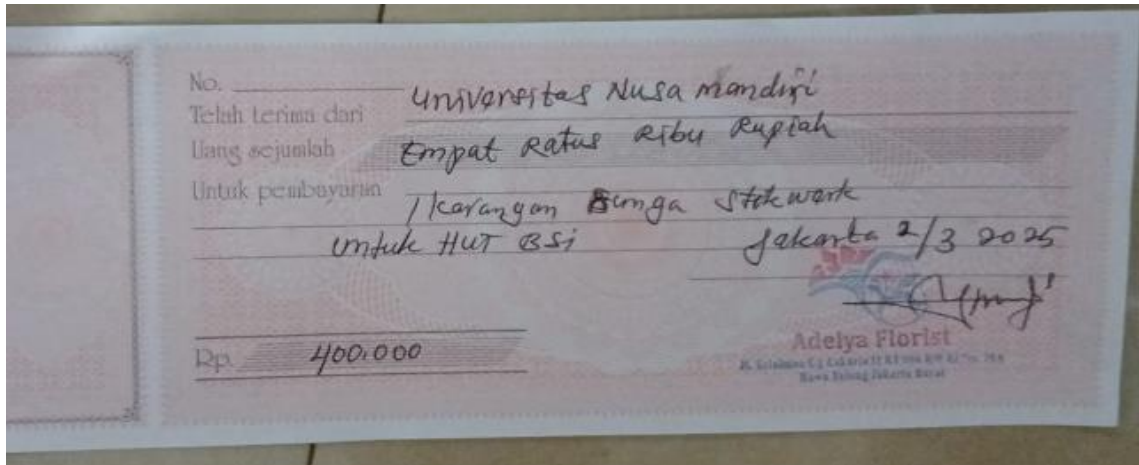 No.
Telah terima dari Universitas Nusa Mandiri
Uang sejumlah Empat Ratus Ribu Rupiah
Untuk pembayaran 1 karangan Bunga Stekwerk
untuk HUT BSi Jakarta 2/3 2025
Rp. 400.000
Adelya Florist
Rawa Belong Jakarta Barat